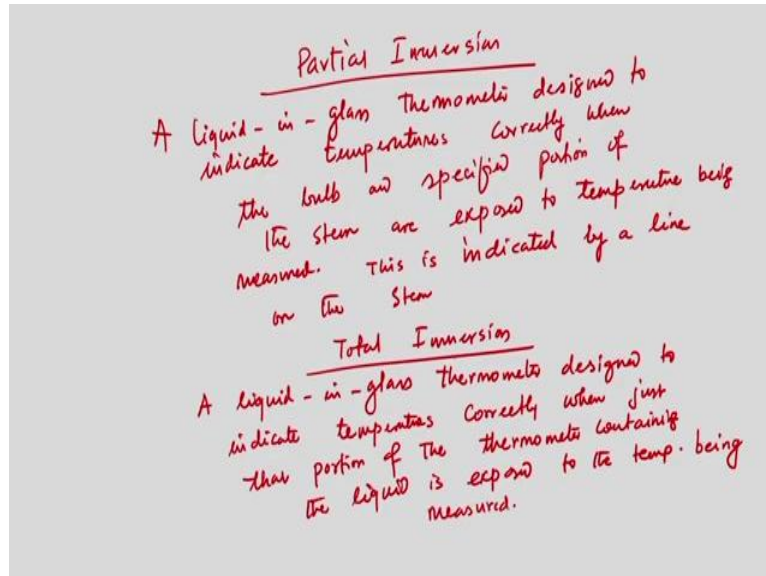 Partial Immersion
A liquid-in-glass thermometer designed to
indicate temperatures correctly when
the bulb and specified portion of
the stem are exposed to temperature being
measured. This is indicated by a line
on the stem
Total Immersion
A liquid-in-glass thermometer designed to
indicate temperatures correctly when just
that portion of the thermometer containing
the liquid is exposed to the temp. being
measured.